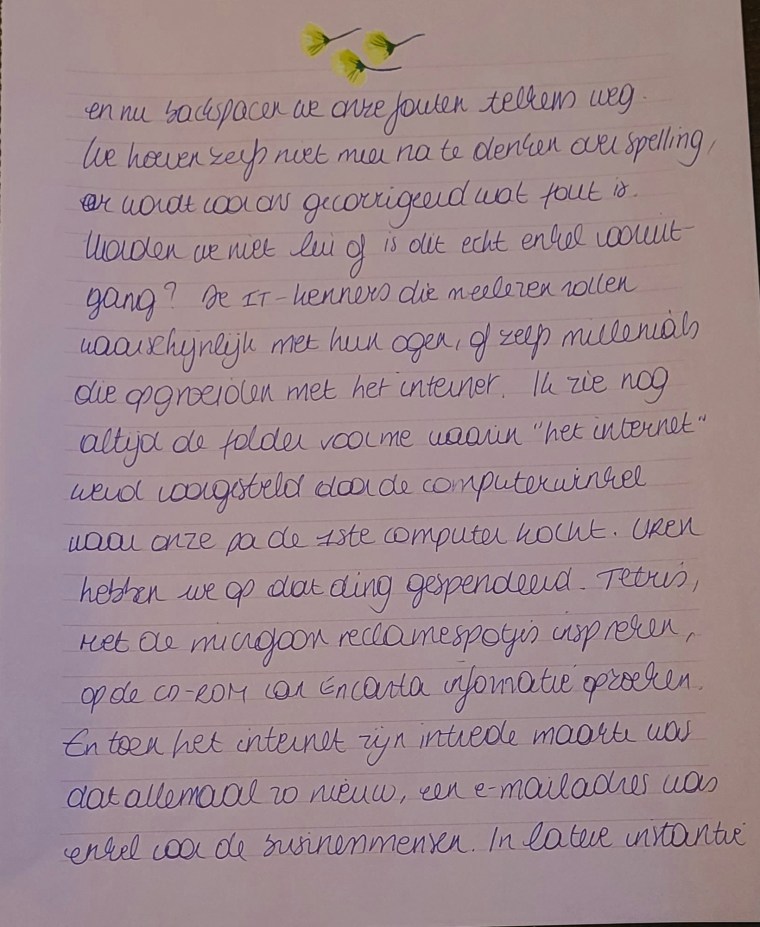 en nu backspacen we onze fouten telkens weg.
We hoeven zelfs niet meer na te denken over spelling,
er wordt voor ons gecorrigeerd wat fout is.
Worden we niet lui of is dit echt enkel vooruit-
gang? De IT-kenners die meelezen rollen
waarschijnlijk met hun ogen, of zelfs millenials
die opgroeiden met het internet. Ik zie nog
altijd de folder voor me waarin "het internet"
werd voorgesteld door de computerwinkel
waar onze pa de 1ste computer kocht. UREN
hebben we op dat ding gespendeerd. Tetris,
met de microfoon reclamespotjes inspreken,
op de CD-ROM van Encarta informatie opzoeken.
En toen het internet zijn intrede maakte was
dat allemaal zo nieuw, een e-mailadres was
enkel voor de businessmensen. In latere instantie